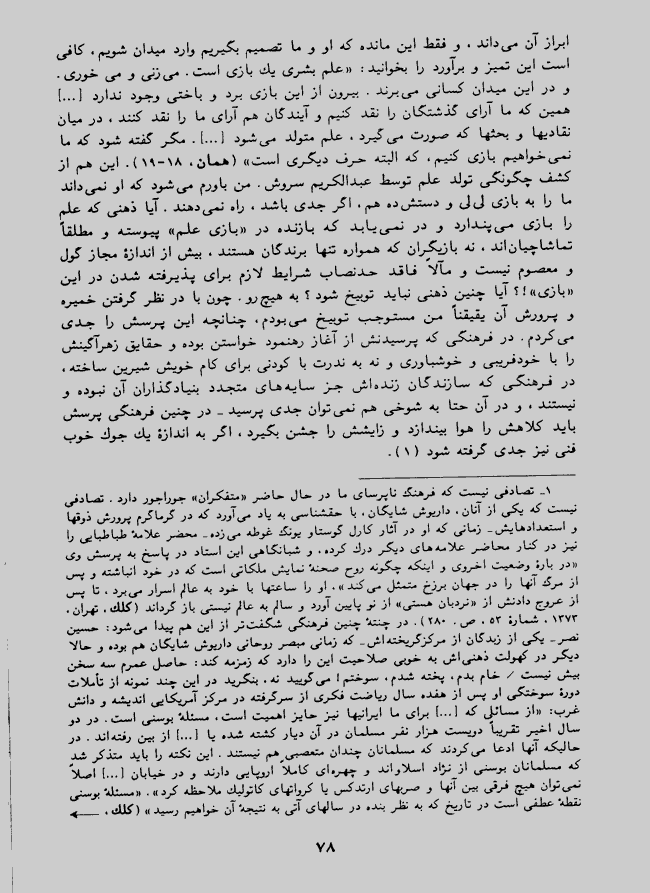 ابراز آن می‌داند، و فقط این مانده که او و ما تصمیم بگیریم وارد میدان شویم، کافی
است این تمیز و برآورد را بخوانید: «علم بشری یك بازی است. می‌زنی و می خوری.
و در این میدان کسانی می‌برند. بیرون از این بازی برد و باختی وجود ندارد [...]
همین که ما آرای گذشتگان را نقد کنیم و آیندگان هم آرای ما را نقد کنند، در میان
نقادیها و بحثها که صورت می‌گیرد، علم متولد می‌شود [...]. مگر گفته شود که ما
نمی‌خواهیم بازی کنیم، که البته حرف دیگری است» (همان، ۱۸-۱۹). این هم از
کشف چگونگی تولد علم توسط عبدالکریم سروش. من باورم می‌شود که او نمی‌داند
ما را به بازی لی‌لی و دستش‌ده هم، اگر جدی باشد، راه نمی‌دهند. آیا ذهنی که علم
را بازی می‌پندارد و در نمی‌یابد که بازنده در «بازی علم» پیوسته و مطلقاً
تماشاچیان‌اند، نه بازیگران که همواره تنها برندگان هستند، بیش از اندازهٔ مجاز گول
و معصوم نیست و مآلاً فاقد حدنصاب شرایط لازم برای پذیرفته شدن در این
«بازی»!؟ آیا چنین ذهنی نباید توبیخ شود؟ به هیچ‌رو. چون با در نظر گرفتن خمیره
و پرورش آن یقیقناً من مستوجب توبیخ می‌بودم، چنانچه این پرسش را جدی
می‌کردم. در فرهنگی که پرسیدنش از آغاز رهنمود خواستن بوده و حقایق زهرآگینش
را با خودفریبی و خوشباوری و نه به ندرت با کودنی برای کام خویش شیرین ساخته،
در فرهنگی که سازندگان زنده‌اش جز سایه‌های متجدد بنیادگذاران آن نبوده و
نیستند، و در آن حتا به شوخی هم نمی‌توان جدی پرسید ـ در چنین فرهنگی پرسش
باید کلاهش را هوا بیندازد و زایشش را جشن بگیرد، اگر به اندازهٔ یك جوك خوب
فنی نیز جدی گرفته شود (۱).
۱ـ تصادفی نیست که فرهنگ ناپرسای ما در حال حاضر «متفکران» جوراجور دارد. تصادفی
نیست که یکی از آنان، داریوش شایگان، با حقشناسی به یاد می‌آورد که در گرماگرم پرورش ذوقها
و استعدادهایش ـ زمانی که او در آثار کارل گوستاو یونگ غوطه می‌زده ـ محضر علامهٔ طباطبایی را
نیز در کنار محاضر علامه‌های دیگر درك کرده، و شبانگاهی این استاد در پاسخ به پرسش وی
«در بارهٔ وضعیت اخروی و اینکه چگونه روح صحنهٔ نمایش ملکاتی است که در خود انباشته و پس
از مرگ آنها را در جهان برزخ متمثل می‌کند»، او را ساعتها با خود به عالم اسرار می‌برد، تا پس
از عروج دادنش از «نردبان هستی» از نو پایین آورد و سالم به عالم نیستی باز گرداند (کلك، تهران،
۱۳۷۳، شمارهٔ ۵۳، ص. ۲۸۰). در چنتهٔ چنین فرهنگی شگفت‌تر از این هم پیدا می‌شود: حسین
نصر ـ یکی از زبدگان از مرکزگریخته‌اش ـ که زمانی مبصر روحانی داریوش شایگان هم بوده و حالا
دیگر در کهولت ذهنی‌اش به خوبی صلاحیت این را دارد که زمزمه کند: حاصل عمرم سه سخن
بیش نیست / خام بدم، پخته شدم، سوختم! می‌گویید نه، بنگرید در این چند نمونه از تأملات
دورهٔ سوختگی او پس از هفده سال ریاضت فکری از سرگرفته در مرکز آمریکایی اندیشه و دانش
غرب: «از مسائلی که [...] برای ما ایرانیها نیز حایز اهمیت است، مسئلهٔ بوسنی است. در دو
سال اخیر تقریباً دویست هزار نفر مسلمان در آن دیار کشته شده یا [...] از بین رفته‌اند. در
حالیکه آنها ادعا می‌کردند که مسلمانان چندان متعصبی هم نیستند. این نکته را باید متذکر شد
که مسلمانان بوسنی از نژاد اسلاواند و چهره‌ای کاملاً اروپایی دارند و در خیابان [...] اصلاً
نمی‌توان هیچ فرقی بین آنها و صربهای ارتدکس یا کرواتهای کاتولیك ملاحظه کرد». «مسئلهٔ بوسنی
نقطهٔ عطفی است در تاریخ که به نظر بنده در سالهای آتی به نتیجهٔ آن خواهیم رسید» (کلك، ←
۷۸